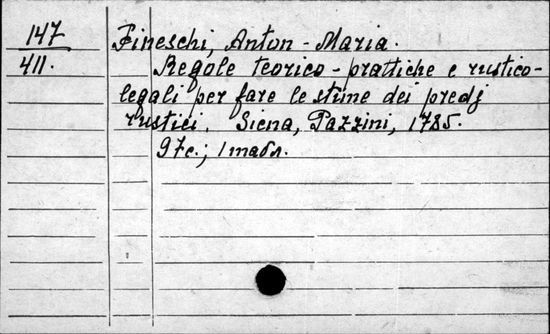 147
411.
Fineschi, Anton-Maria.
Regole teorico-prattiche e rustico-
legali per fare le stime dei predj
rustici. Siena, Pazzini, 1785.
97c.; 1 табл.